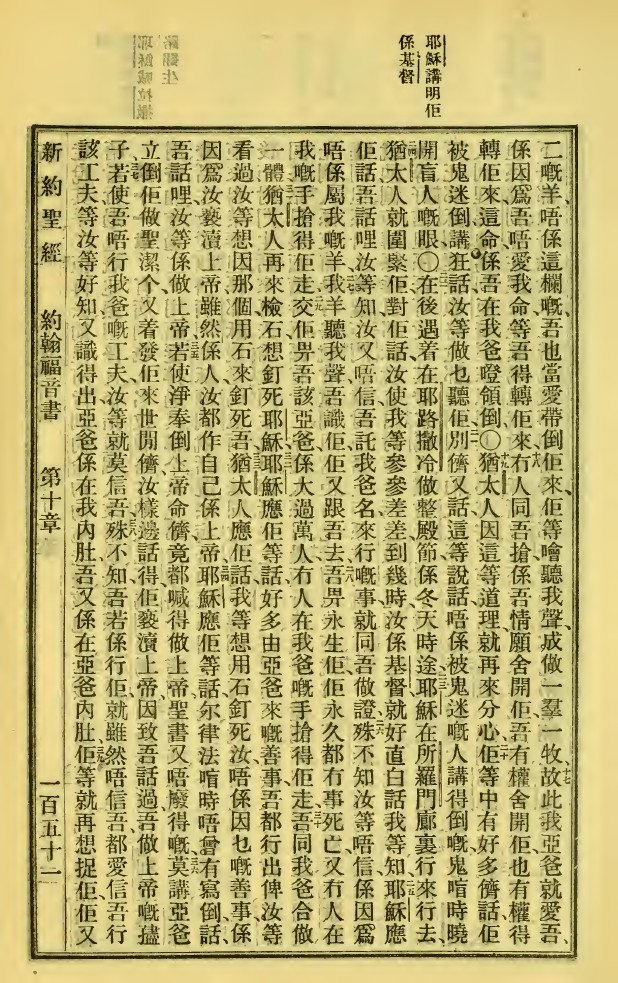 耶穌講明佢
係基督
二嘅羊唔係這欄嘅、吾也當愛帶倒佢來、佢等噲聽我聲、成做一羣一牧、故此我亞爸就愛吾、
係因爲吾唔愛我命等吾得轉佢來、冇人同吾搶、係吾情願舍開佢、吾有權舍開佢、也有權得
轉佢來、這命係吾在我爸噔領倒〇猶太人因這等道理就再來分心、佢等中有好多儕話、佢
被鬼迷倒講狂話、汝等做乜聽佢、別儕又話、這等說話唔係被鬼迷嘅人講得倒嘅、鬼喧時曉
開盲人嘅眼〇在後遇着在耶路撒冷做整殿節、係冬天時、途耶穌在所羅門廊裏行來行去、
猶太人就圍緊佢、對佢話、汝使我等參參差差到幾時、汝係基督就好直白話我等知、耶穌應
佢話、吾話哩汝等知、汝又唔信、吾託我爸名來行嘅事、就同吾做證、殊不知汝等唔信、係因爲
唔係屬我嘅羊、我羊聽我聲、吾識佢、佢又跟吾去、吾畀永生佢、佢永久都冇事死亡、又冇人在
我嘅手搶得佢走、交佢畀吾該亞爸、係大過萬人、冇人在我爸嘅手搶得佢走、吾同我爸合做
一體、猶太人再來檢石、想釘死耶穌、耶穌應佢等話、好多由亞爸來嘅善事、吾都行出俾汝等
看過、汝等想因那個用石來釘死吾、猶太人應佢話、我等想用石釘死汝、唔係因乜嘅善事、係
因爲汝褻瀆上帝、雖然係人、汝都作自己係上帝、耶穌應佢等話、尔律法喧時唔曾有寫倒話、
吾話哩汝等係做上帝、若使淨奉倒上帝命儕、竟都喊得做上帝、聖書又唔廢得嘅、莫講亞爸
立倒佢做聖潔个、又着發佢來世閒儕、汝樣邊話得佢褻瀆上帝、因致吾話過、吾做上帝嘅㨆
子、若使吾唔行我爸嘅工夫、汝等就莫信吾、殊不知吾若係行佢、就雖然唔信吾、都愛信吾行
該工夫、等汝等好知又識得出亞爸係在我內肚、吾又係在亞爸內肚、佢等就再想捉佢、佢又
新約聖經 約翰福音書 第十章 一百五十一